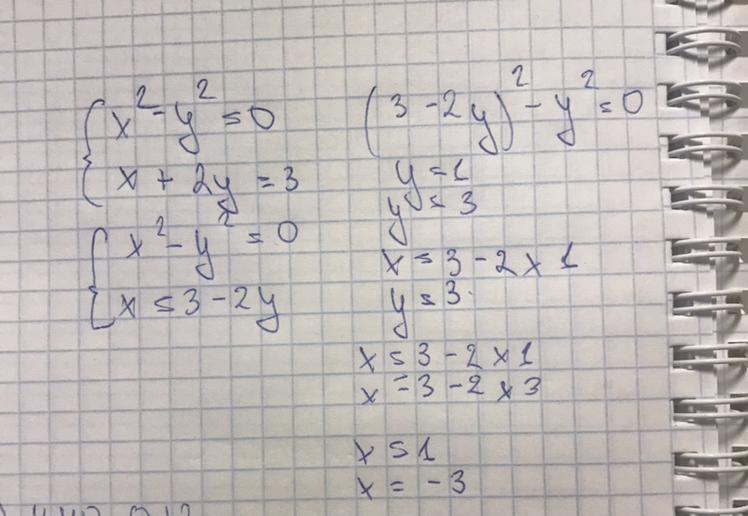 x² - y² = 0
x + 2y = 3
x² - y² = 0
x = 3 - 2y
(3 - 2y)² - y² = 0
y = 1
y = 3
x = 3 - 2 x 1
y = 3
x = 3 - 2 x 1
x = 3 - 2 x 3
x = 1
x = -3